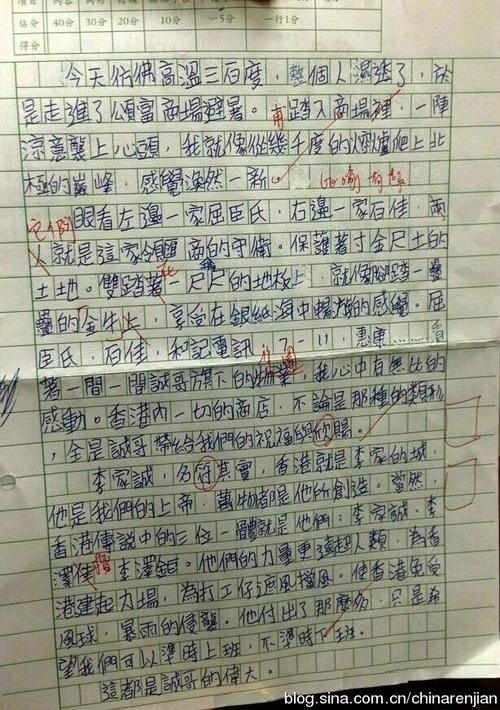 項目 內容 詞句 結構
佔分 40分 30分 20分 10分 一5分 一行1分
得分
今天彷彿高溫三百度，整個人濕透了，於
是走進了頌富商場避暑。甫踏入商場裡，一陣
涼意襲上心頭，我就像從幾千度的火爐爬上北
極的巔峰，感覺渙然一新。
眼看左邊一家屈臣氏，右邊一家百佳，兩
人就是這家今頤商的守衛。保護着寸金尺土的
土地。雙踏著一尺尺的地板上，就像腳踏一疊
疊的金牛上，享受在銀紙海中暢游的感覺。屈
臣氏，百佳，和記電訊，7-11，惠康……看
著一間一間誠哥旗下的物業，我心中有無比的
感動。香港內一切的商店，不論是那種的類別
，全是誠哥帶給我們的祝福與欣賜。
李家誠，名符其實，香港就是李家的城，
他是我們的上帝，萬物都是他所創造。當然，
香港傳說中的三位一體就是他們：李家誠、李
澤佳楷李澤鉅。他們的力量更凌超人類，為香
港建起力場，為打工仔遮風擋風。使香港免受
風球，暴雨的侵襲。他付出了那麼多，只是希
望我們可以準時上班，不準時下班。
這都是誠哥的偉大。
blog.sina.com.cn/chinarenjian